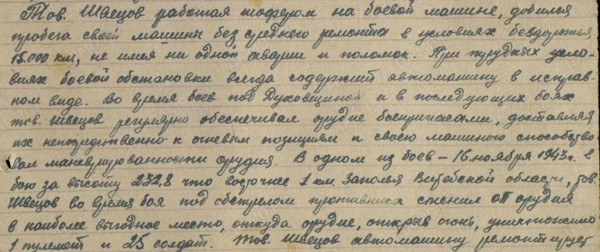 Тов. Швецов работая шофером на боевой машине, добился
пробега своей машины без среднего ремонта в условиях бездорожья
15.000 км, не имея ни одной аварии и поломок. При трудных усло-
виях боевой обстановки всегда содержит автомашину в исправ-
ном виде. Во время боев под Духовщиной и в последующих боях
тов. Швецов регулярно обеспечивал орудие боеприпасами, доставляя
их непосредственно к огневым позициям и своею машиною способство
вал маневрированности орудия. В одном из боев – 16 ноября 1943 г. в
бою за высоту 232,8 что восточнее 1 км. Заполья Витебской области, тов.
Швецов во время боя под обстрелом противника сменил ОП орудия
в наиболее выгодное место, откуда орудие, открыв огонь, уничтожило
1 пулемет и 25 солдат. Тов. Швецов автомашину ремонтирует